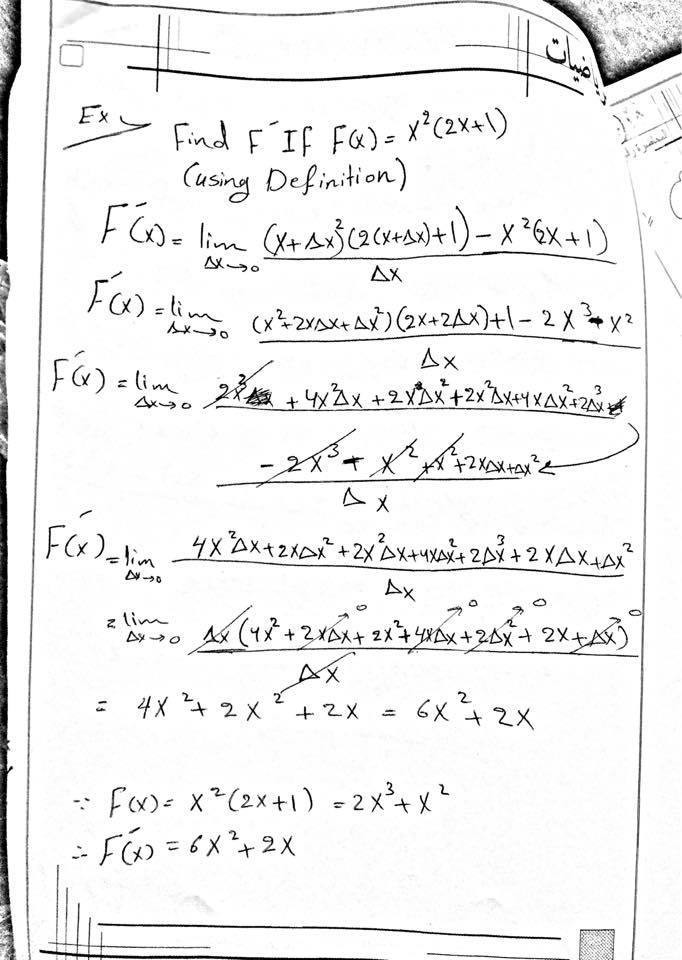 رياضيات
Ex
Find F′ If F(x) = x²(2x+1)
(using Definition)
F′(x) = lim Δx→0 (x+Δx)²(2(x+Δx)+1) − x²(2x+1) / Δx
F′(x) = lim Δx→0 (x²+2xΔx+Δx²)(2x+2Δx)+1 − 2x³ − x² / Δx
F′(x) = lim Δx→0 2x³ + 4x²Δx + 2xΔx² + 2x²Δx + 4xΔx² + 2Δx³
− 2x³ − x² + x² + 2xΔx + Δx² / Δx
F′(x) = lim Δx→0 4x²Δx + 2xΔx² + 2x²Δx + 4xΔx² + 2Δx³ + 2xΔx + Δx² / Δx
= lim Δx→0 Δx(4x² + 2xΔx + 2x² + 4xΔx + 2Δx² + 2x + Δx) / Δx
= 4x² + 2x² + 2x = 6x² + 2x
∵ F(x) = x²(2x+1) = 2x³ + x²
∴ F′(x) = 6x² + 2x